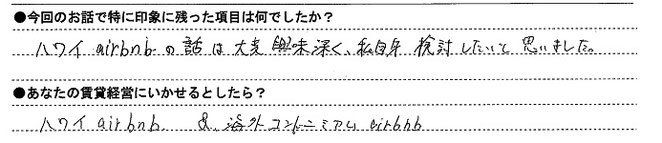 ●今回のお話で特に印象に残った項目は何でしたか？
ハワイ airbnbの話は大変興味深く、私自身 検討したいと思いました。
●あなたの賃貸経営にいかせるとしたら？
ハワイ airbnb. & 海外コンドミニアム airbnb